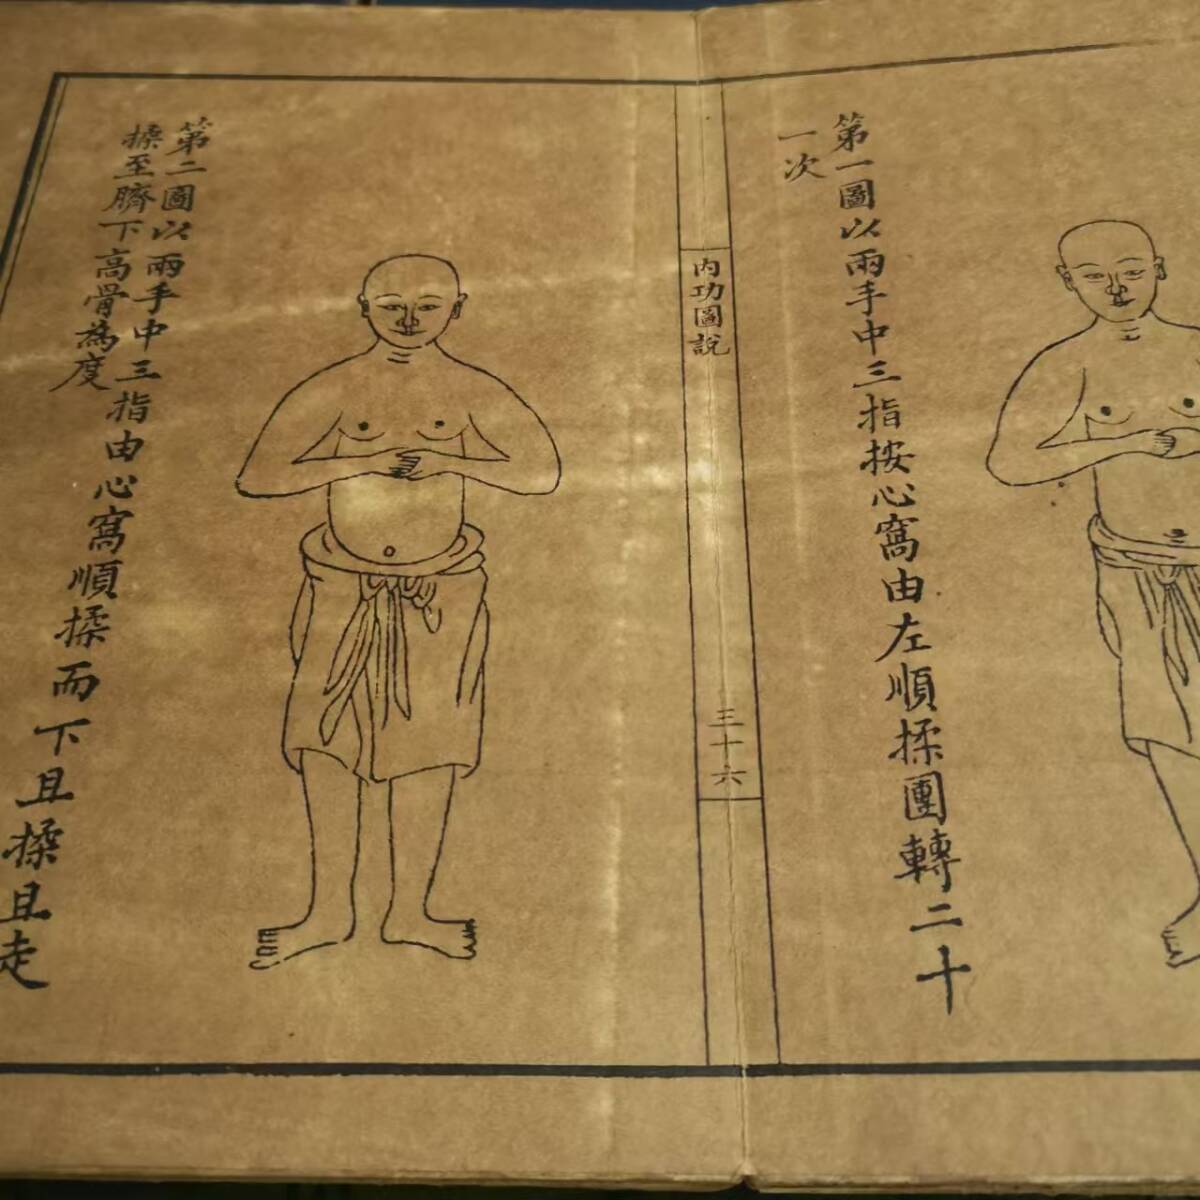 第一圖以兩手中三指按心窩由左順揉團轉二十
一次
内功圖說
三十六
第二圖以兩手中三指由心窩順揉而下且揉且走
揉至臍下高骨為度